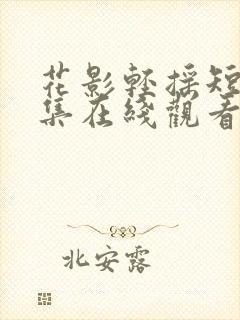 花影轻採短
集在綫觀看
北安露